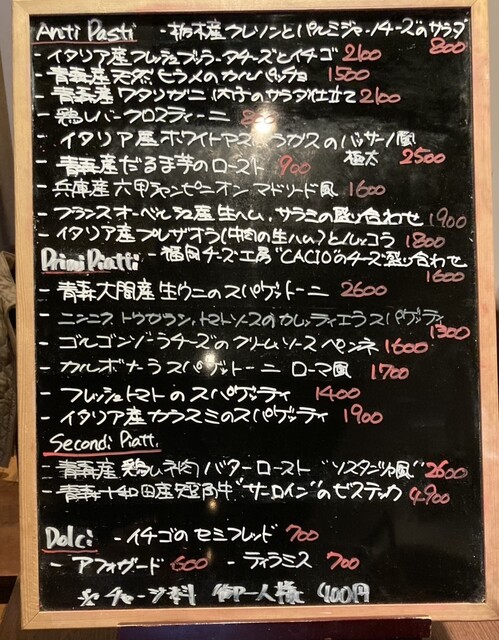 Anti Pasti - 栃木産クレソンとパルミジャーノチーズのサラダ 800
- イタリア産フレッシュブラータチーズとイチゴ 2100
- 青森産天然ヒラメのカルパッチョ 1500
- 青森産ワタリガニ(内子)のサラダ仕立て 2100
- 鶏レバークロスティーニ
- イタリア産ホワイトアスパラガスのバッサーノ風 極太 2500
- 青森産だるま芋のロースト 900
- 兵庫産六甲チャンピニオン マドリード風 1600
- フランスオーベルニュ産生ハム、サラミの盛り合わせ 1900
- イタリア産ブレザオラ(牛肉の生ハム)とルッコラ 1800
Primi Piatti - 福岡チーズ工房"CACIO"のチーズ盛り合わせ 1600
- 青森大間産生ウニのスパゲットーニ 2600
- ニンニク、トウガラシ、トマトソースのカレッティエラスパゲッティ 1300
- ゴルゴンゾーラチーズのクリームソースペンネ 1600
- カルボナーラスパゲットーニ ローマ風 1700
- フレッシュトマトのスパゲッティ 1400
- イタリア産カラスミのスパゲッティ 1900
Secondi Piatti
- 青森産鶏ムネ肉バターロースト "ソスタンツァ風" 2600
- 青森十和田産短角牛"サーロイン"のビステッカ 4900
Dolci - イチゴのセミフレッド 700
- アフォガード 600 - ティラミス 700
※チャージ料 御一人様 400円